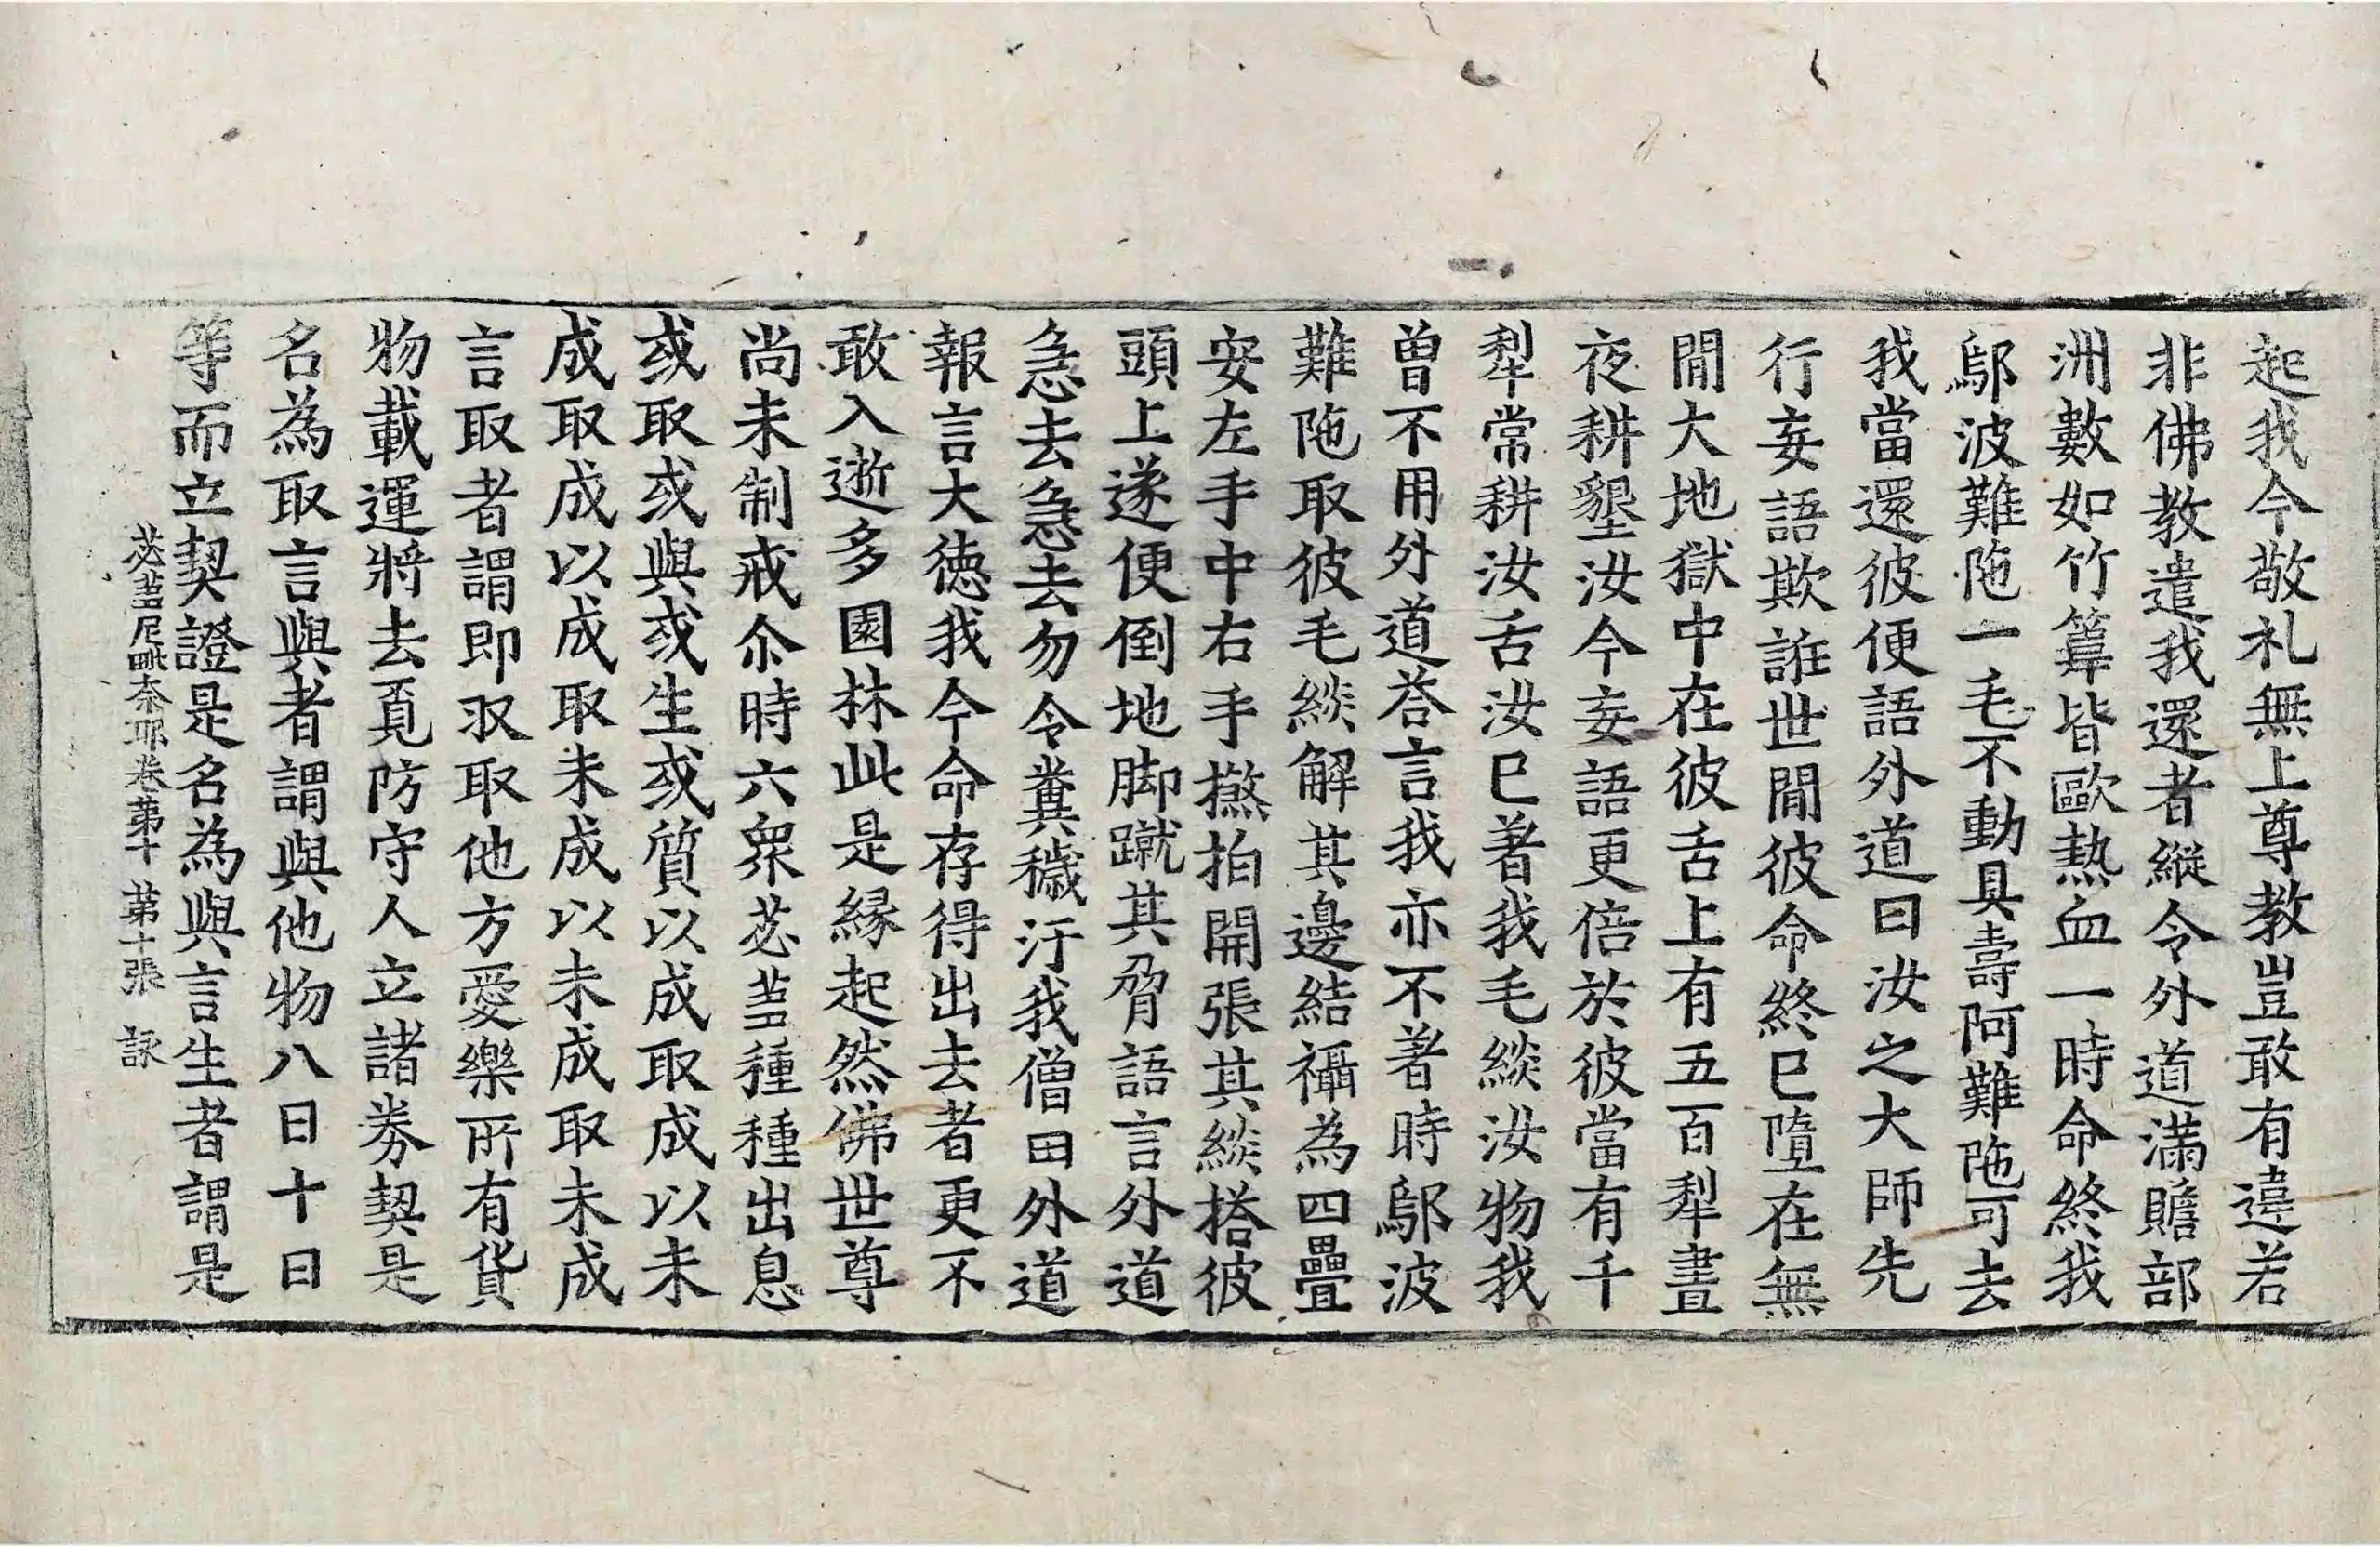 起我今敬礼無上尊教豈敢有違若
非佛教遣我還者縱令外道滿贍部
洲數如竹䈽皆歐熱血一時命終我
鄔波難陁一毛不動具壽阿難陁可去
我當還彼便語外道曰汝之大師先
行妄語欺誑世閒彼命終已墮在無
閒大地獄中在彼舌上有五百犁晝
夜耕墾汝今妄語更倍於彼當有千
犁常耕汝舌汝已著我毛緂汝物我
曾不用外道荅言我亦不著時鄔波
難陁取彼毛緂解其邊結襵為四疊
安左手中右手撚拍開張其緂搭彼
頭上遂便倒地脚蹴其脅語言外道
急去急去勿令糞穢汙我僧田外道
報言大德我今命存得出去者更不
敢入逝多園林此是緣起然佛世尊
尚未制戒尒時六衆苾蒭種種出息
或取或與或生或質以成取成以未
成取成以成取未成以未成取未成
言取者謂即収取他方愛樂所有貨
物載運將去覓防守人立諸券契是
名為取言與者謂與他物八日十日
等而立契證是名為與言生者謂是
苾蒭尼毗奈耶卷苐十 第十張 詠